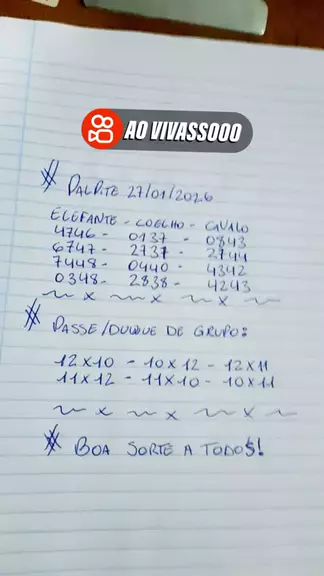 AO VIVASSOOO
# PALPITE 27/01/2026
ELEFANTE - COELHO - CAVALO
4746 - 0137 - 0843
6747 - 2737 - 2744
7448 - 0440 - 4342
0348 - 2838 - 4243
~ x ~ x ~ x ~
# PASSE/DUQUE DE GRUPO:
12x10 - 10x12 - 12x11
11x12 - 11x10 - 10x11
~ x ~ x ~ x ~
# BOA SORTE A TODO$!